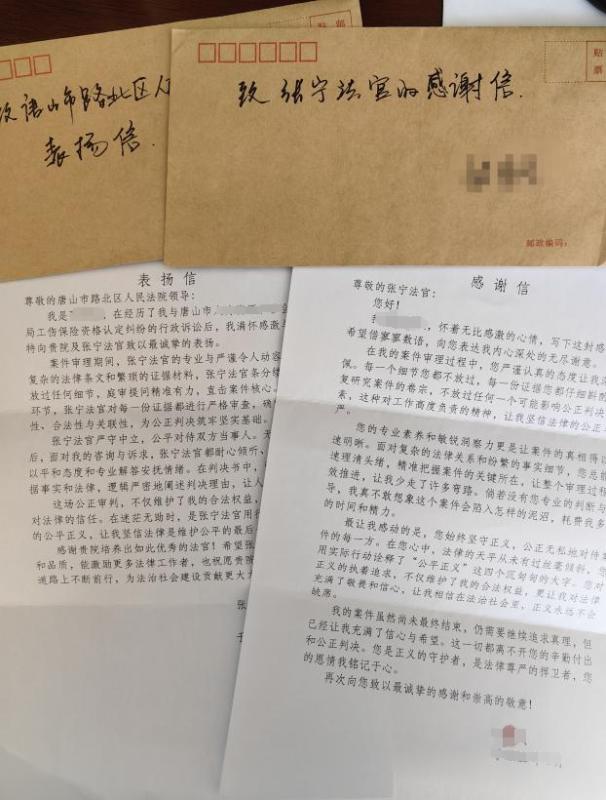 贴
票
致唐山市路北区人
表扬信.
致张宁法官的感谢信.
贴
票
邮政编码:
表扬信
尊敬的唐山市路北区人民法院领导:
我是 ,在经历了我与唐山市
局工伤保险资格认定纠纷的行政诉讼后,我满怀感激与
特向贵院及张宁法官致以最诚挚的表扬。
案件审理期间,张宁法官的专业与严谨令人动容
复杂的法律条文和繁琐的证据材料,张宁法官条分缕
放过任何细节,庭审提问精准有力,直击案件核心。
环节,张宁法官对每一份证据都进行严格审查,确
性、合法性与关联性,为公正判决筑牢坚实基础。
张宁法官严守中立,公平对待双方当事人。无
后,面对我的咨询与诉求,张宁法官都耐心倾听、
以平和态度和专业解答安抚情绪。在判决书中,
据事实和法律,逻辑严密地阐述判决理由,让人
这场公正审判,不仅维护了我的合法权益,
对法律的信任。在迷茫无助时,是张宁法官用行
的公平正义,让我坚信法律是维护公平的最后
感谢贵院培养出如此优秀的法官!希望张
和品质,能激励更多法律工作者,也祝愿贵院
道路上不断前行,为法治社会建设贡献更大力
张
感谢信
尊敬的张宁法官:
您好!
,怀着无比感激的心情,写下这封感
希望借寥寥数语,向您表达我内心深处的无尽谢意。
在我的案件审理过程中,您严谨认真的态度让我
佩。每一个细节您都不放过,每一份证据您都仔细斟酌
复研究案件的卷宗,不放过任何一个可能影响公正判决
素,这种对工作高度负责的精神,让我坚信法律的公正
严。
您的专业素养和敏锐洞察力更是让案件的真相得以
速明晰。面对复杂的法律关系和纷繁的事实细节,您总能
速理清头绪,精准把握案件的关键所在,让整个审理过程
效推进,让我少走了许多弯路。倘若没有您专业的判断与
导,我真不敢想象这个案件会陷入怎样的泥沼,耗费我多
的时间和精力。
最让我感动的是,您始终坚守正义,公正无私地对待案
件的每一方。在您心中,法律的天平从未有过丝毫倾斜,您
用实际行动诠释了“公平正义”这四个沉甸甸的大字。您对
正义的执着追求,不仅维护了我的合法权益,更让我对法律
充满了敬畏和信心,让我相信在法治社会里,正义永远不会
缺席。
我的案件虽然尚未最终结束,仍需要继续追求真理,但
已经让我充满了信心与希望。这一切都离不开您的辛勤付出
和公正判决。您是正义的守护者,是法律尊严的捍卫者,您
的恩情我铭记于心。
再次向您致以最诚挚的感谢和崇高的敬意!